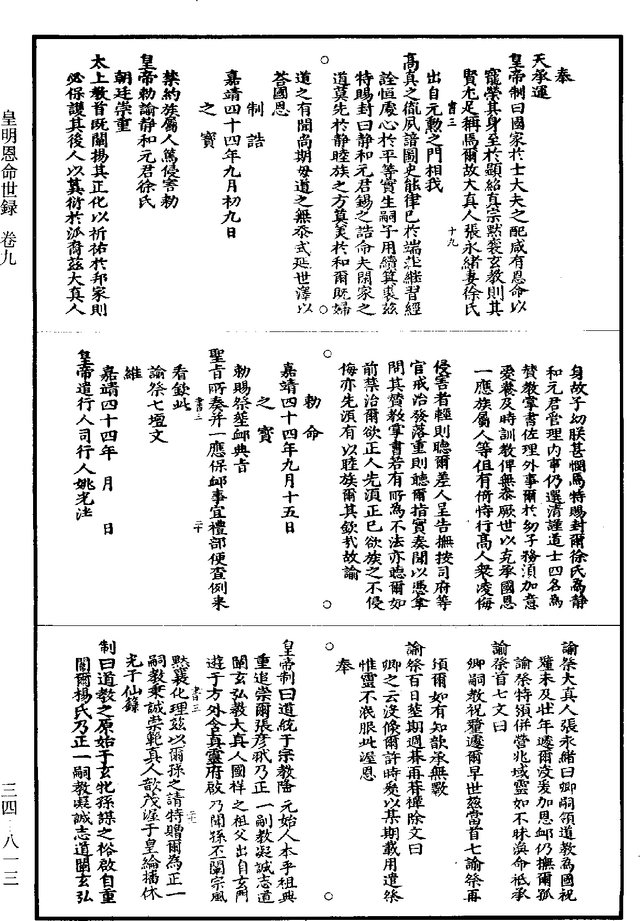 皇明恩命世録 卷九
三四 八一三
奉
天承運
皇帝制曰國家於士大夫之配咸有恩命以
寵榮其身至於顯紹真宗默裹玄教則其
賢尤足稱焉爾故大真人張永緒妻徐氏
書三 十九
出自元勳之門相我
高真之胤夙諳圖史能律己於端莊繼習經
詮恒處心於平等實生嗣子用續箕裘兹
特賜封曰靜和元君錫之誥命夫閑家之
道莫先於靜睦族之方莫美於和爾既婦
道之有聞尚期母道之無忝式延世澤以
荅國恩
制誥
嘉靖四十四年九月初九日
之寶
禁約族屬人等侵害勑
皇帝勑諭靜和元君徐氏
朝廷崇重
太上教首旣闡揚其正化以祈祐於邦家則
必保護其後人以冀衍於派裔兹大真人
身故子幼朕甚憫焉特賜封爾徐氏爲靜
和元君管理内事仍選清謹道士四名爲
贊教掌書佐理外事爾於幼子務須加意
愛養及時訓教俾無忝厥世以克承國恩
一應族屬人等但有倚恃行高人衆凌侮
侵害者輕則聽爾差人呈告撫按司府等
官戒治發落重則聽爾指實奏聞以憑拿
問其贊教掌書若有所爲不法亦聽爾如
前禁治爾欲正人先須正己欲族之不侵
侮亦先須有以睦族爾其欽哉故諭
勑命
嘉靖四十四年九月十五日
之寶
勑賜祭塋卹典旨
聖旨所奏并一應保卹事宜禮部便查例来
看欽此
書三 二十
諭祭七壇文
維
嘉靖四十四年 月 日
皇帝遣行人司行人姚光泮
諭祭大真人張永緒曰卿嗣領道教爲國祝
釐未及壯年遽爾殁爰加恩卹仍撫爾孤
諭祭特頒併營兆域靈如不昧渙命祗承
諭祭首七文曰
卿嗣教祝釐遽爾早世兹當首七諭祭再
頒爾如有知歆承無斁
諭祭百日塟期週朞再朞禫除文曰
卿之云没倏爾許時爰以某期載用遣祭
惟靈不泯服此渥恩
奉
皇帝制曰道統于宗教隆元始人本乎祖典
重追崇爾張彦𤣱乃正一嗣教凝誠志道
闡玄弘教大真人國樣之祖父出自玄門
遊于方外含真靈府啟乃聞孫丕闡宗風
默襄化理兹以爾孫之請特贈爾爲正一
書三
嗣教秉誠崇範真人歆茂渥于皇綸播休
光于仙籙
制曰道教之原始于玄牝孫謀之裕啟自重
闈爾楊氏乃正一嗣教凝誠志道闡玄弘